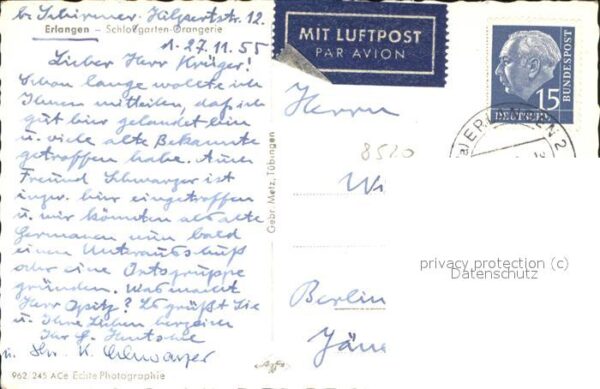 b. Schirmer, Hilpertstr. 12
Erlangen - Schloßgarten-Orangerie
27.11.55
Lieber Herr Krüger!
Schon lange wollte ich
Ihnen mitteilen, daß ich
gut hier gelandet bin
u. viele alte Bekannte
getroffen habe. Auch
Freund Schwarzer ist
inzw. hier eingetroffen
u. wir könnten als alte
Germanen nun bald
einen Unterausschuß
oder eine Ortsgruppe
gründen. Was macht
Herr Opitz? Es grüßt Sie
u. Ihre Lieben herzlich
Ihr
u. Ihr K. Schwarzer
962/245 ACe Echte Photographie
Gebr. Metz, Tübingen
MIT LUFTPOST
PAR AVION
15
DEUTSCHE
BUNDESPOST
ERLANGEN 2
Herrn
8520
Berlin
privacy protection (c)
Datenschutz